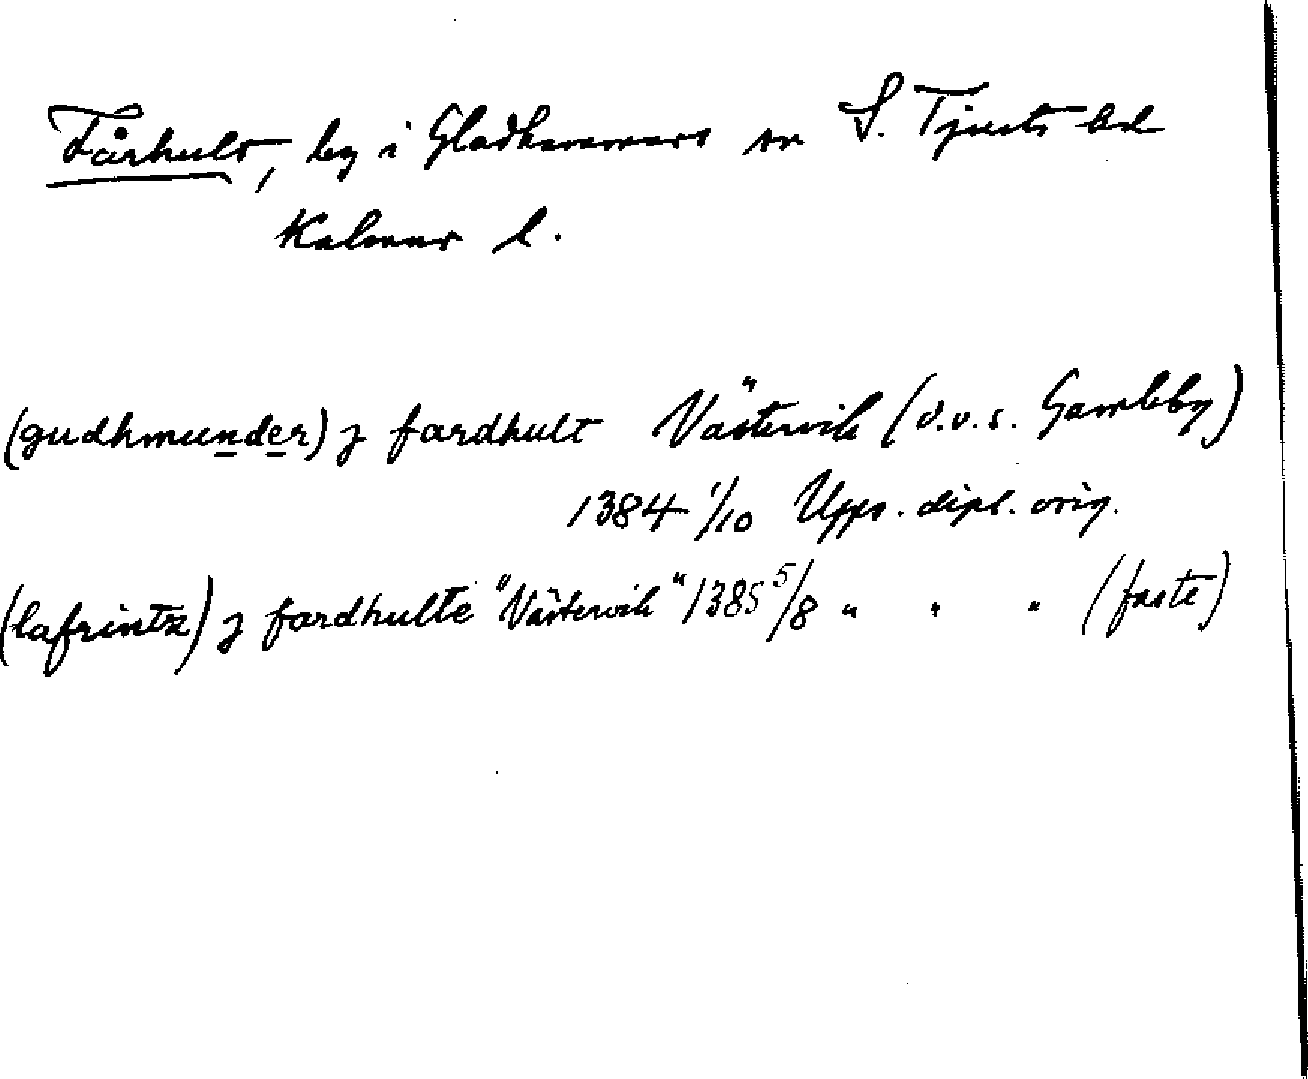 Fårhult, by i Gladhammars sn S. Tjusts hd
Kalmar l.
(gudhmunder) j fardhult Västervik (d.v.s. Gamleby)
1384 1/10 Upps. dipl. orig.
(lafrintz) j fardhulte "Västervik" 1385 5/8 " " " (faste)